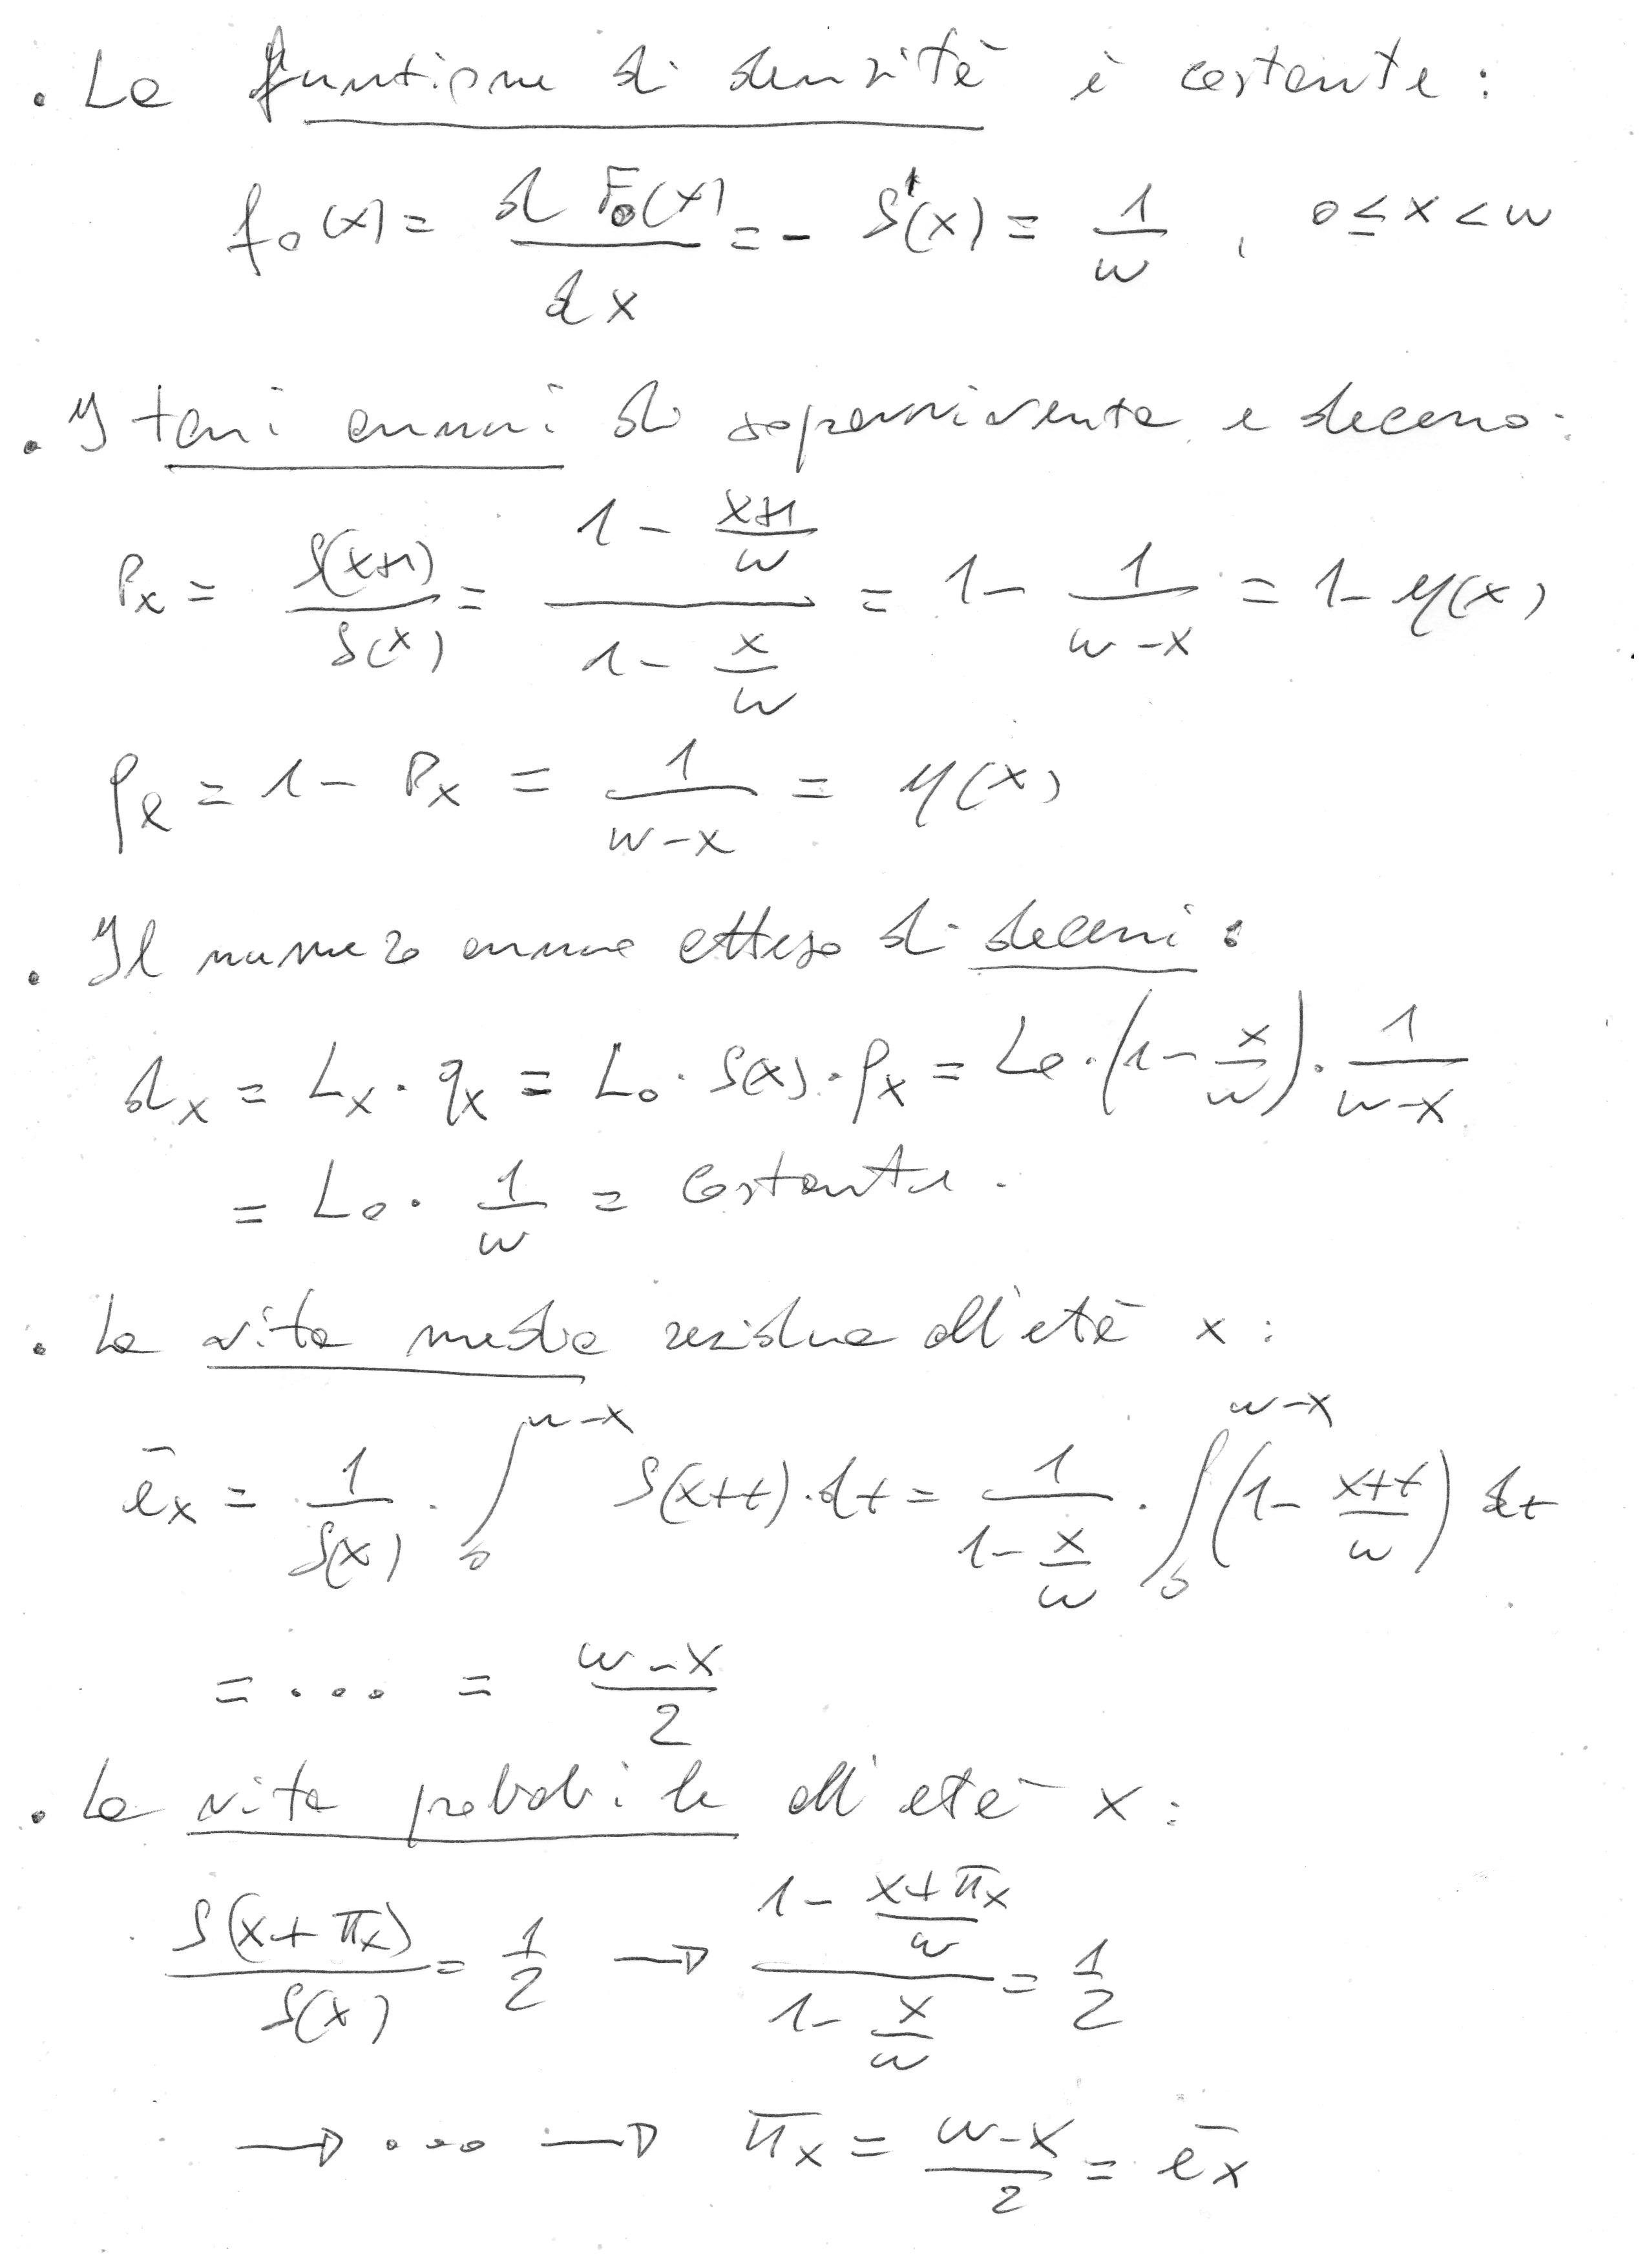 . La funzione di densità è costante:
f₀(x) = d F₀(x) / dx = - S'(x) = 1/w , 0 ≤ x < w
. I tassi annui di sopravvivenza e decesso:
Px = S(x+1) / S(x) = (1 - (x+1)/w) / (1 - x/w) = 1 - 1/(w-x) = 1 - μ(x)
qx = 1 - Px = 1/(w-x) = μ(x)
. Il numero annuo atteso di decessi:
dx = Lx · qx = L₀ · S(x) · qx = L₀ · (1 - x/w) · 1/(w-x)
= L₀ · 1/w = costante.
. La vita media residua all'età x:
ēx = 1/S(x) · ∫₀^(w-x) S(x+t) · dt = 1/(1 - x/w) · ∫₀^(w-x) (1 - (x+t)/w) dt
= ... = (w-x)/2
. La vita probabile all'età x:
S(x+πx) / S(x) = 1/2 → (1 - (x+πx)/w) / (1 - x/w) = 1/2
→ ... → πx = (w-x)/2 = ēx